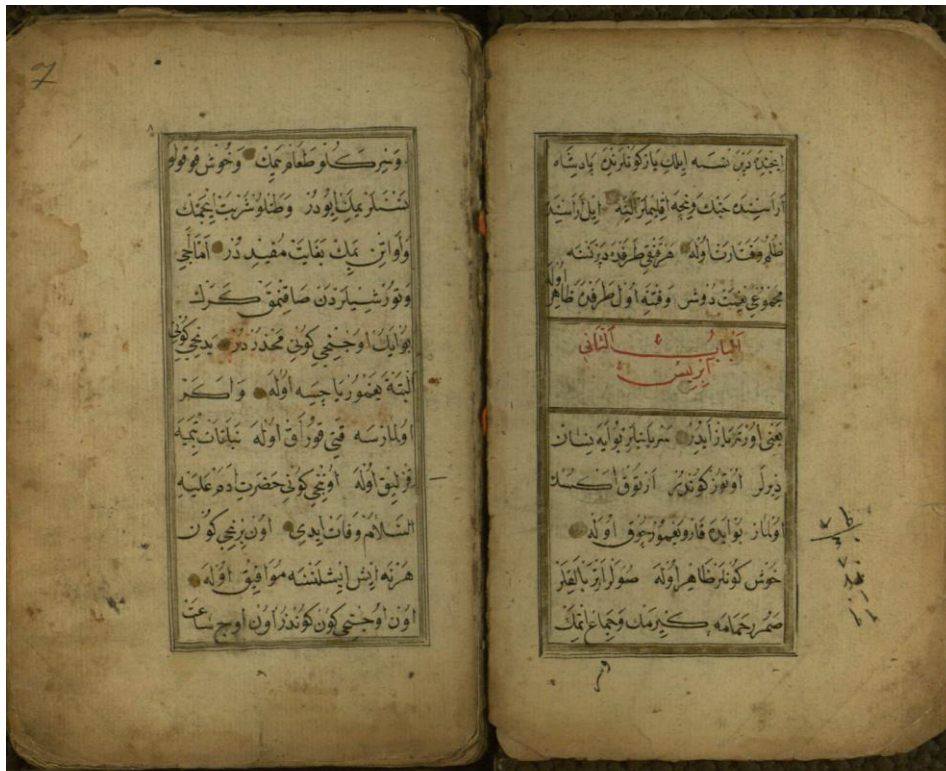 ایچنده دپرنسه ایلك یاز كونلرنده پادشاه
اراسنده جنك ونیچه اقلیملر النه ایل اراسنده
ظلم وغارت اوله هر قنغی طرفده دپرنسه
مجموعی یست دوش وفتنه اول طرفدن ظاهر اوله
اَلْبابُ اَلثّانی
اَپْریس
یعنی اورته یاز ایدر سریانیلر بو ایه نسان
دیرلر اوتوز كوندر ارتوق اكسك
اولماز بو ایده قار ویغمور چوق اوله
خوش كونلر ظاهر اوله صولر ارتر بالقلر
حمامه كیرمك وجماع اتمك
7
٨
وسركه لو طعام یمك وخوش قوقولو
نسنلر یمك ایودر وطتلو شربت ایچمك
ولواتن یمك بغایت مفید در اما اجی
وتورشیلردن صاقنمق كرك
بو ایك اوچنجی كونی محذر در یدنجی كونی
البته یغمور یاجسه اوله واكر
اولمازسه قتی قوراق اوله نباتات بتمیه
قزلیق اوله اوننجی كونی حضرت ادم علیه
السلام وفات ایدی اون برنجی كون
هر نه ایش ایشلنسه موافق اوله
اون اوچنجی كون كوندز اون اوچ ساعت